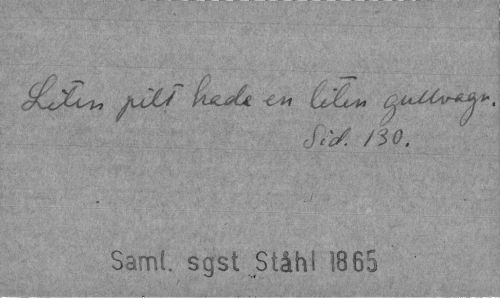 Liten pilt hade en liten gullvagn.
Sid. 130.
Saml. sgst Ståhl 1865